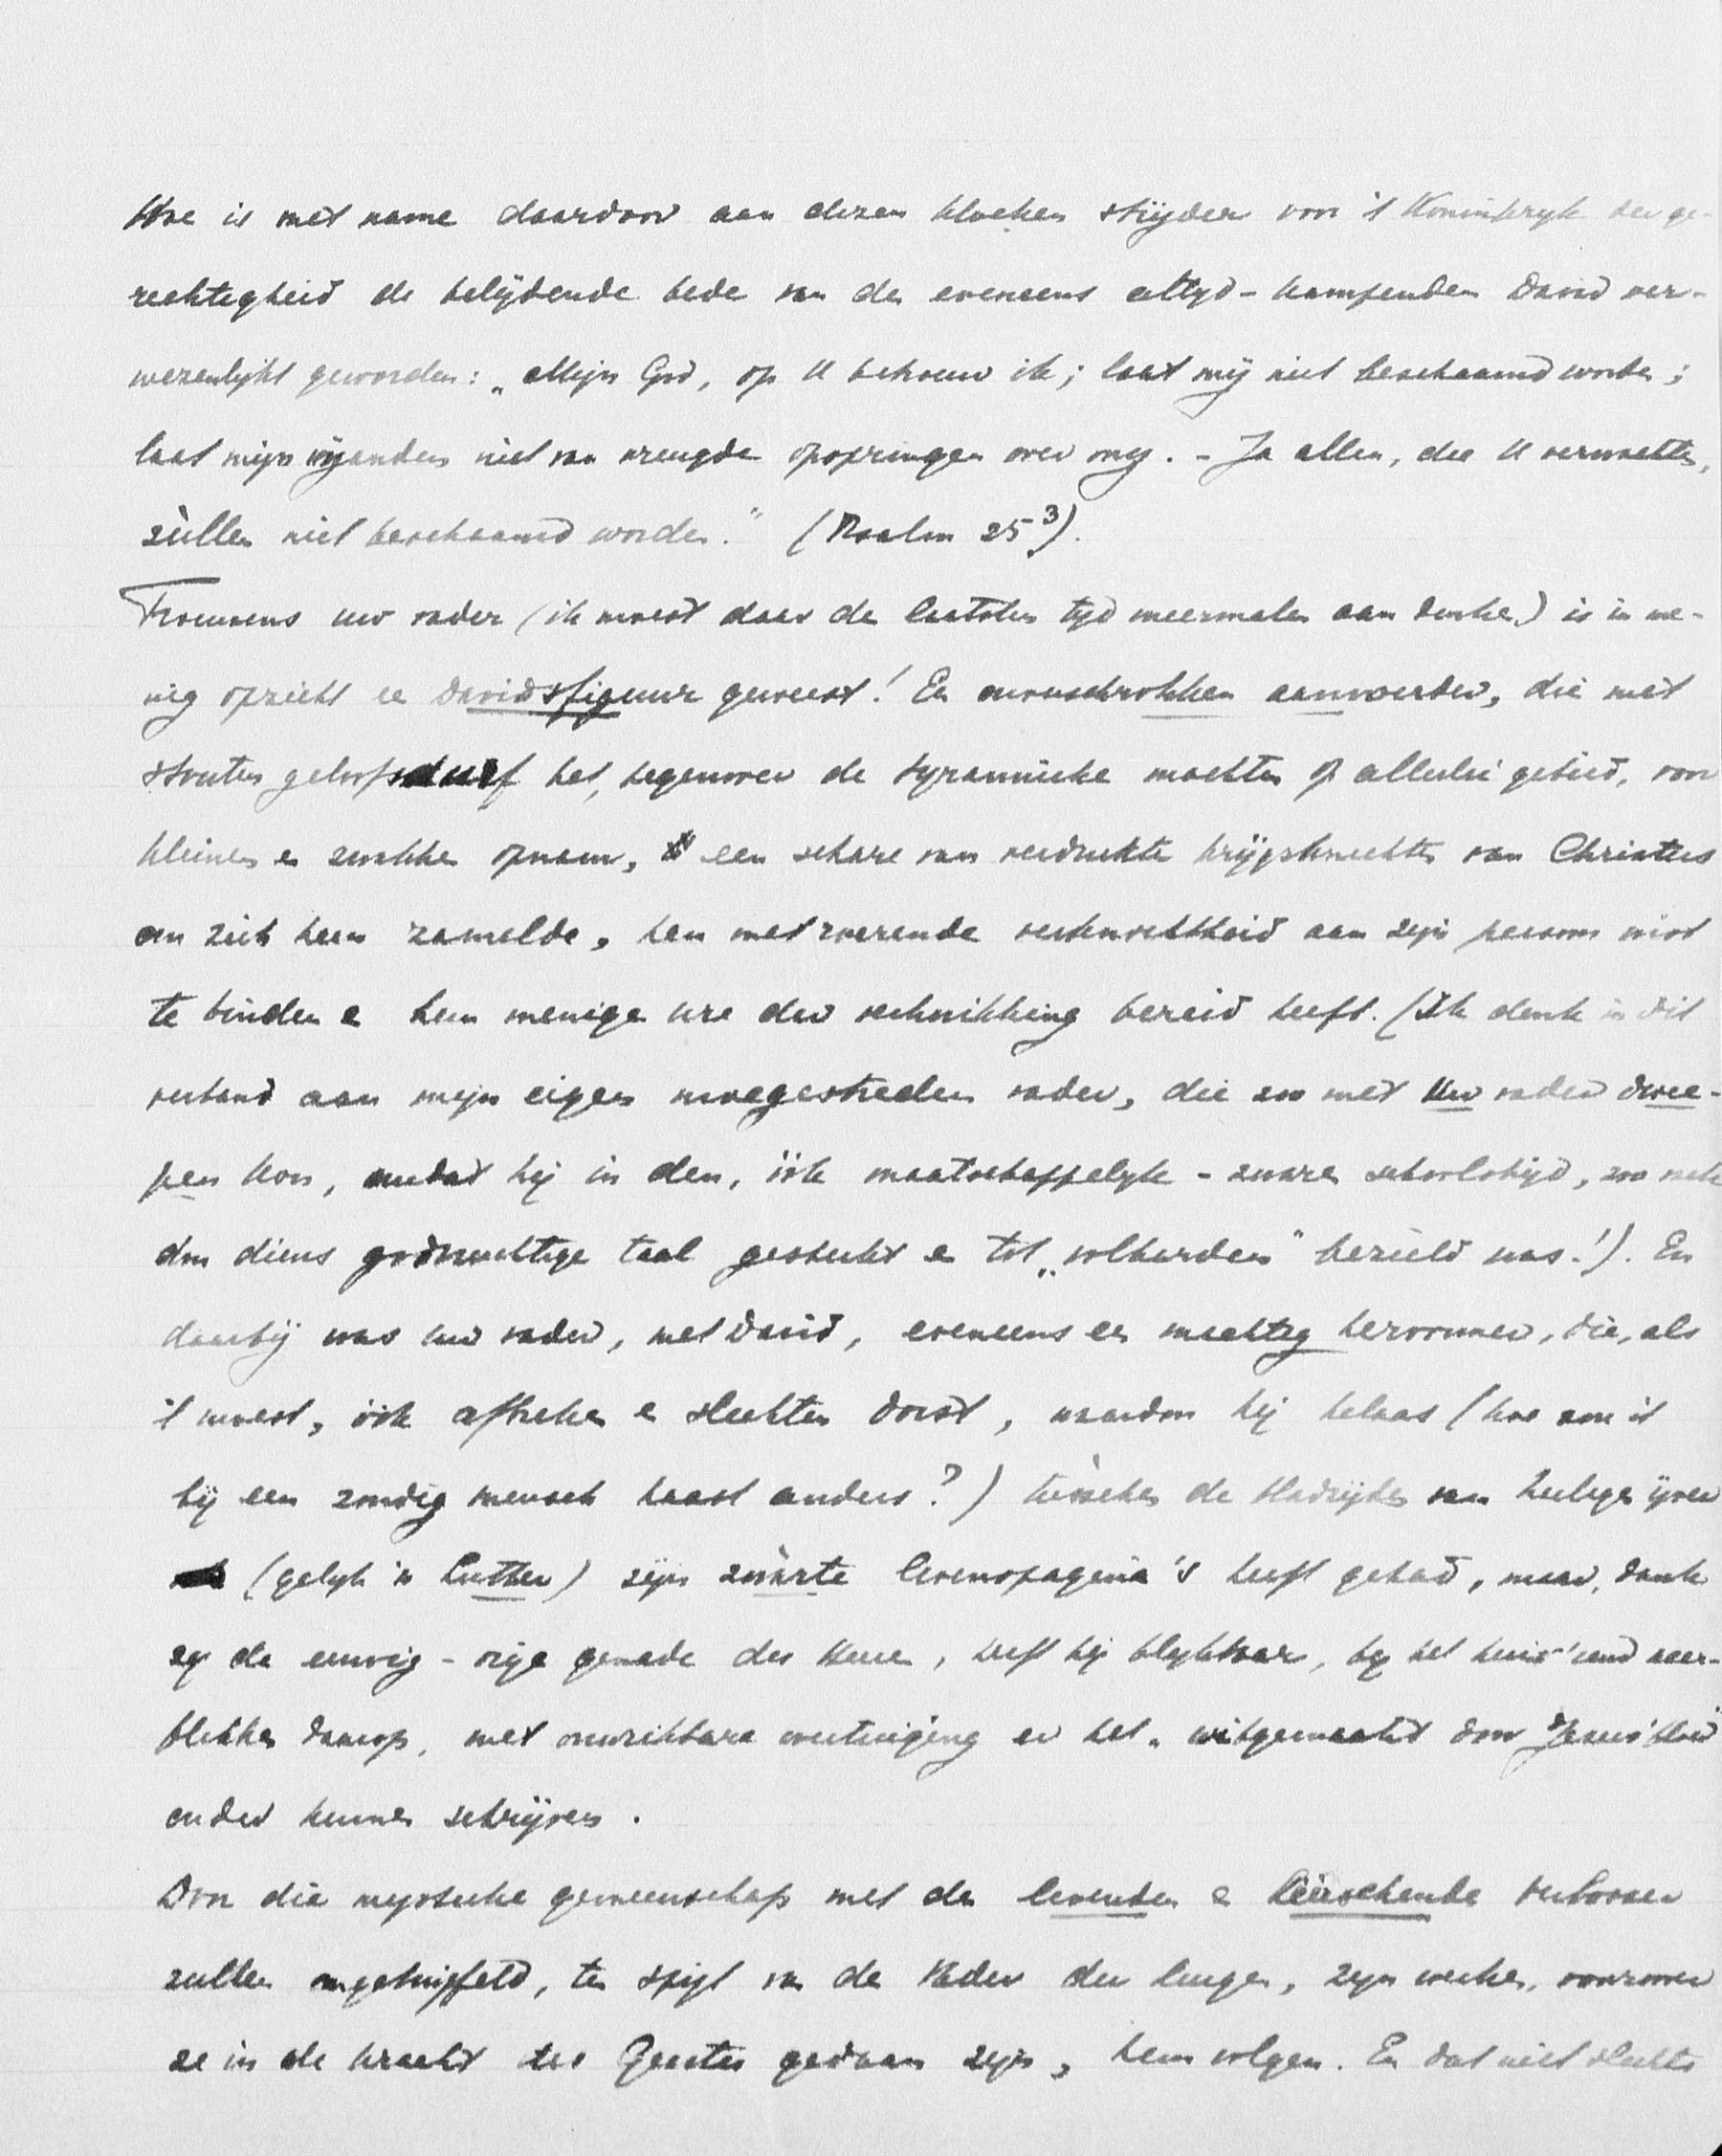 Hoe is met name daardoor aan dezen kloeken strijder voor 't Koninkryk der ge-
rechtigheid de belijdende bede van den eveneens altyd-kampenden David ver-
wezenlykt geworden: „Mijn God, op U betrouw ik; laat mij niet beschaamd worden;
laat mijn vijanden niet van vreugde opspringen over my. - Ja allen, die U verwachten,
zùllen niet beschaamd worden." (Psalm 25³).
Trouwens uw vader (ik moest daar de laatsten tyd meermalen aan denken) is in me-
nig opzicht een Davidsfiguur geweest! Een onverschrokken aanvoerder, die met
stouten geloofsdurf het, tegenover de tyrannieke machten op allerlei gebied, voor
kleinen en zwakken opnam, een schare van verdrukte krijgsknechten van Christus
om zich heen zamelde, hen met roerende verknochtheid aan zijn persoon wist
te binden en hun menige ure der verkwikking bereid heeft. (Ik denk in dit
verband aan mijn eigen moegestreden vader, die zoo met Uw vader dwee-
pen kon, omdat hij in den, óók maatschappelyk-zwaren schoolstrijd, zoo vaak
door diens godvruchtige taal gesterkt en tot „volharden" bezield was!). En
daarbij was uw vader, met David, eveneens een machtig hervormer, die, als
't moest, óók afbreken en slechten dorst, waardoor hij helaas (hoe kon it
bij een zondig mensch haast anders?) tùsschen de bladzijden van heiligen ijver
(gelyk 'n Luther) zijn zwàrte levenspagina's heeft gehad, maar, dank
zy de eeuwig-vrije genade des Heeren, heeft hij blykbaar, by het neer-
blikken daarop, met onwrikbare overtuiging er het „uitgewischt door Jezus' bloed"
onder kunnen schrijven.
Door die mystieke gemeenschap met den levenden en heerschenden Verlosser
zullen ongetwijfeld, ten spijt van de Vader der leugen, zijn werken, voorzoover
ze in de kracht des Geestes gedaan zijn, hem volgen. En dat niet slechts